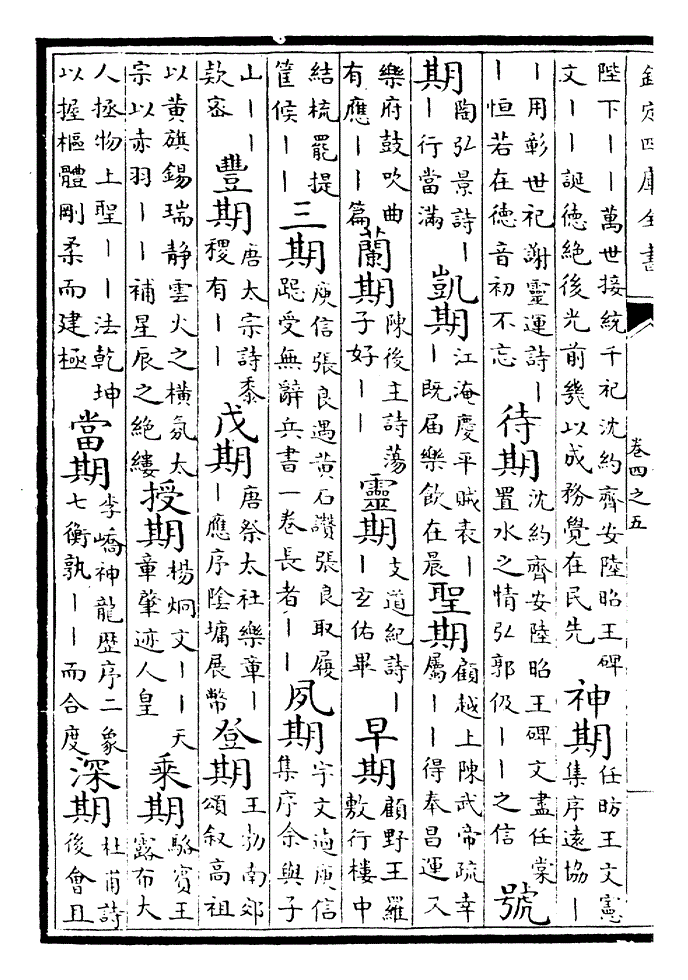 欽定四庫全書　卷四之五
陛下丨丨萬世接統千祀沈約齊安陸昭王碑文丨丨誕徳絶後光前幾以成務覺在民先 神期 任昉王文憲集序遠協丨
丨用彰世祀謝靈運詩丨丨恒若在徳音初不忘 待期 沈約齊安陸昭王碑文盡任棠置水之情弘郭伋丨丨之信 號
期 陶弘景詩丨丨行當滿 凱期 江淹慶平賊表丨丨既届樂飲在晨 聖期 顧越上陳武帝疏幸屬丨丨得奉昌運又
樂府鼓吹曲有應丨丨篇 蘭期 陳後主詩蕩子好丨丨 靈期 支道紀詩丨丨玄佑畢 早期 顧野王羅敷行樓中
結梳罷提筐候丨丨 三期 庾信張良遇黄石讚張良取履跽受無辭兵書一卷長者丨丨 夙期 宇文逌庾信集序余與子
山丨丨欵宻 豐期 唐太宗詩黍稷有丨丨 戊期 唐祭太社樂章丨丨應序陰墉展幣 登期 王勃南郊頌叙高祖
以黄旗錫瑞静雲火之横氛太宗以赤羽丨丨補星辰之絶縷 授期 楊炯文丨丨天章肇迹人皇 乘期 駱賓王露布大
人拯物上聖丨丨法乾坤以握樞體剛柔而建極 當期 李嶠神龍歴序二象七衡孰丨丨而合度 深期 杜甫詩後會且